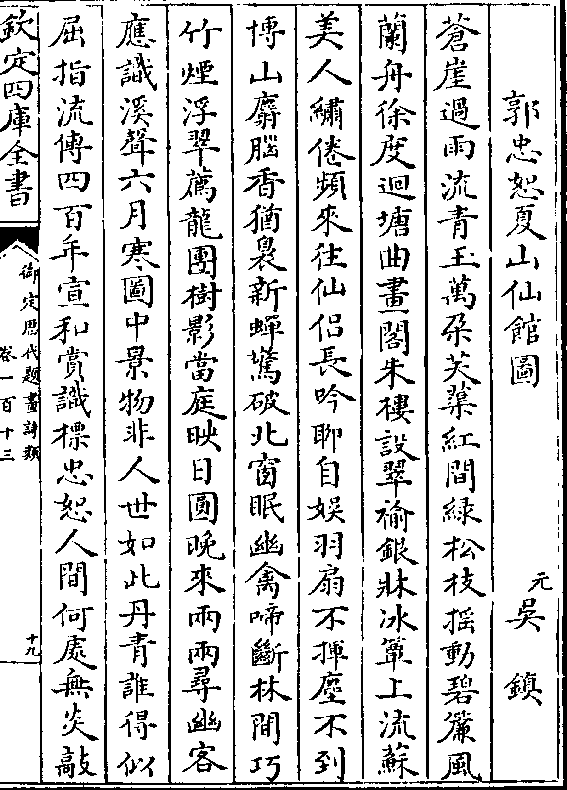 郭忠恕夏山仙館圖
元 吳鎮
蒼崖過雨流青玉萬朶芙蕖紅間綠松枝揺動碧簾風
蘭舟徐度迴塘曲畫閣朱樓設翠褕銀牀冰簟上流蘇
美人繡倦頻來往仙侣長吟聊自娯羽扇不揮塵不到
博山麝腦香猶裊新蟬驚破北窗眠幽禽啼斷林間巧
竹煙浮翠薦龍團樹影當庭映日圓晩來兩兩尋幽客
應識溪聲六月寒圖中景物非人世如此丹青誰得似
屈指流傳四百年宣和賞識標忠恕人間何處無炎歊
欽定四庫全書
御定歴代題畫詩類
卷一百十三
十九